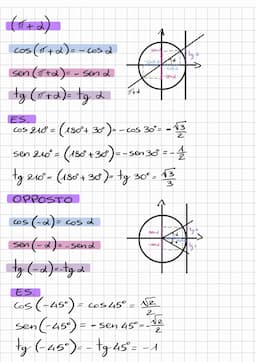 (π+α)
cos(π+α)=-cos α
sen(π+α)=-sen α
tg(π+α)=tg α
ES.
cos 210° = (180°+30°)=-cos 30° = -√3/2
sen 210° = (180°+30°)=-sen 30° = -1/2
tg 210° = (180°+30°)= tg 30° = √3/3
OPPOSTO
cos(-α)=cos α
sen(-α)=-sen α
tg(-α)=-tg α
ES.
cos(-45°) = cos 45° = √2/2
sen(-45°) = -sen 45° = -√2/2
tg(-45°) = -tg 45° = -1